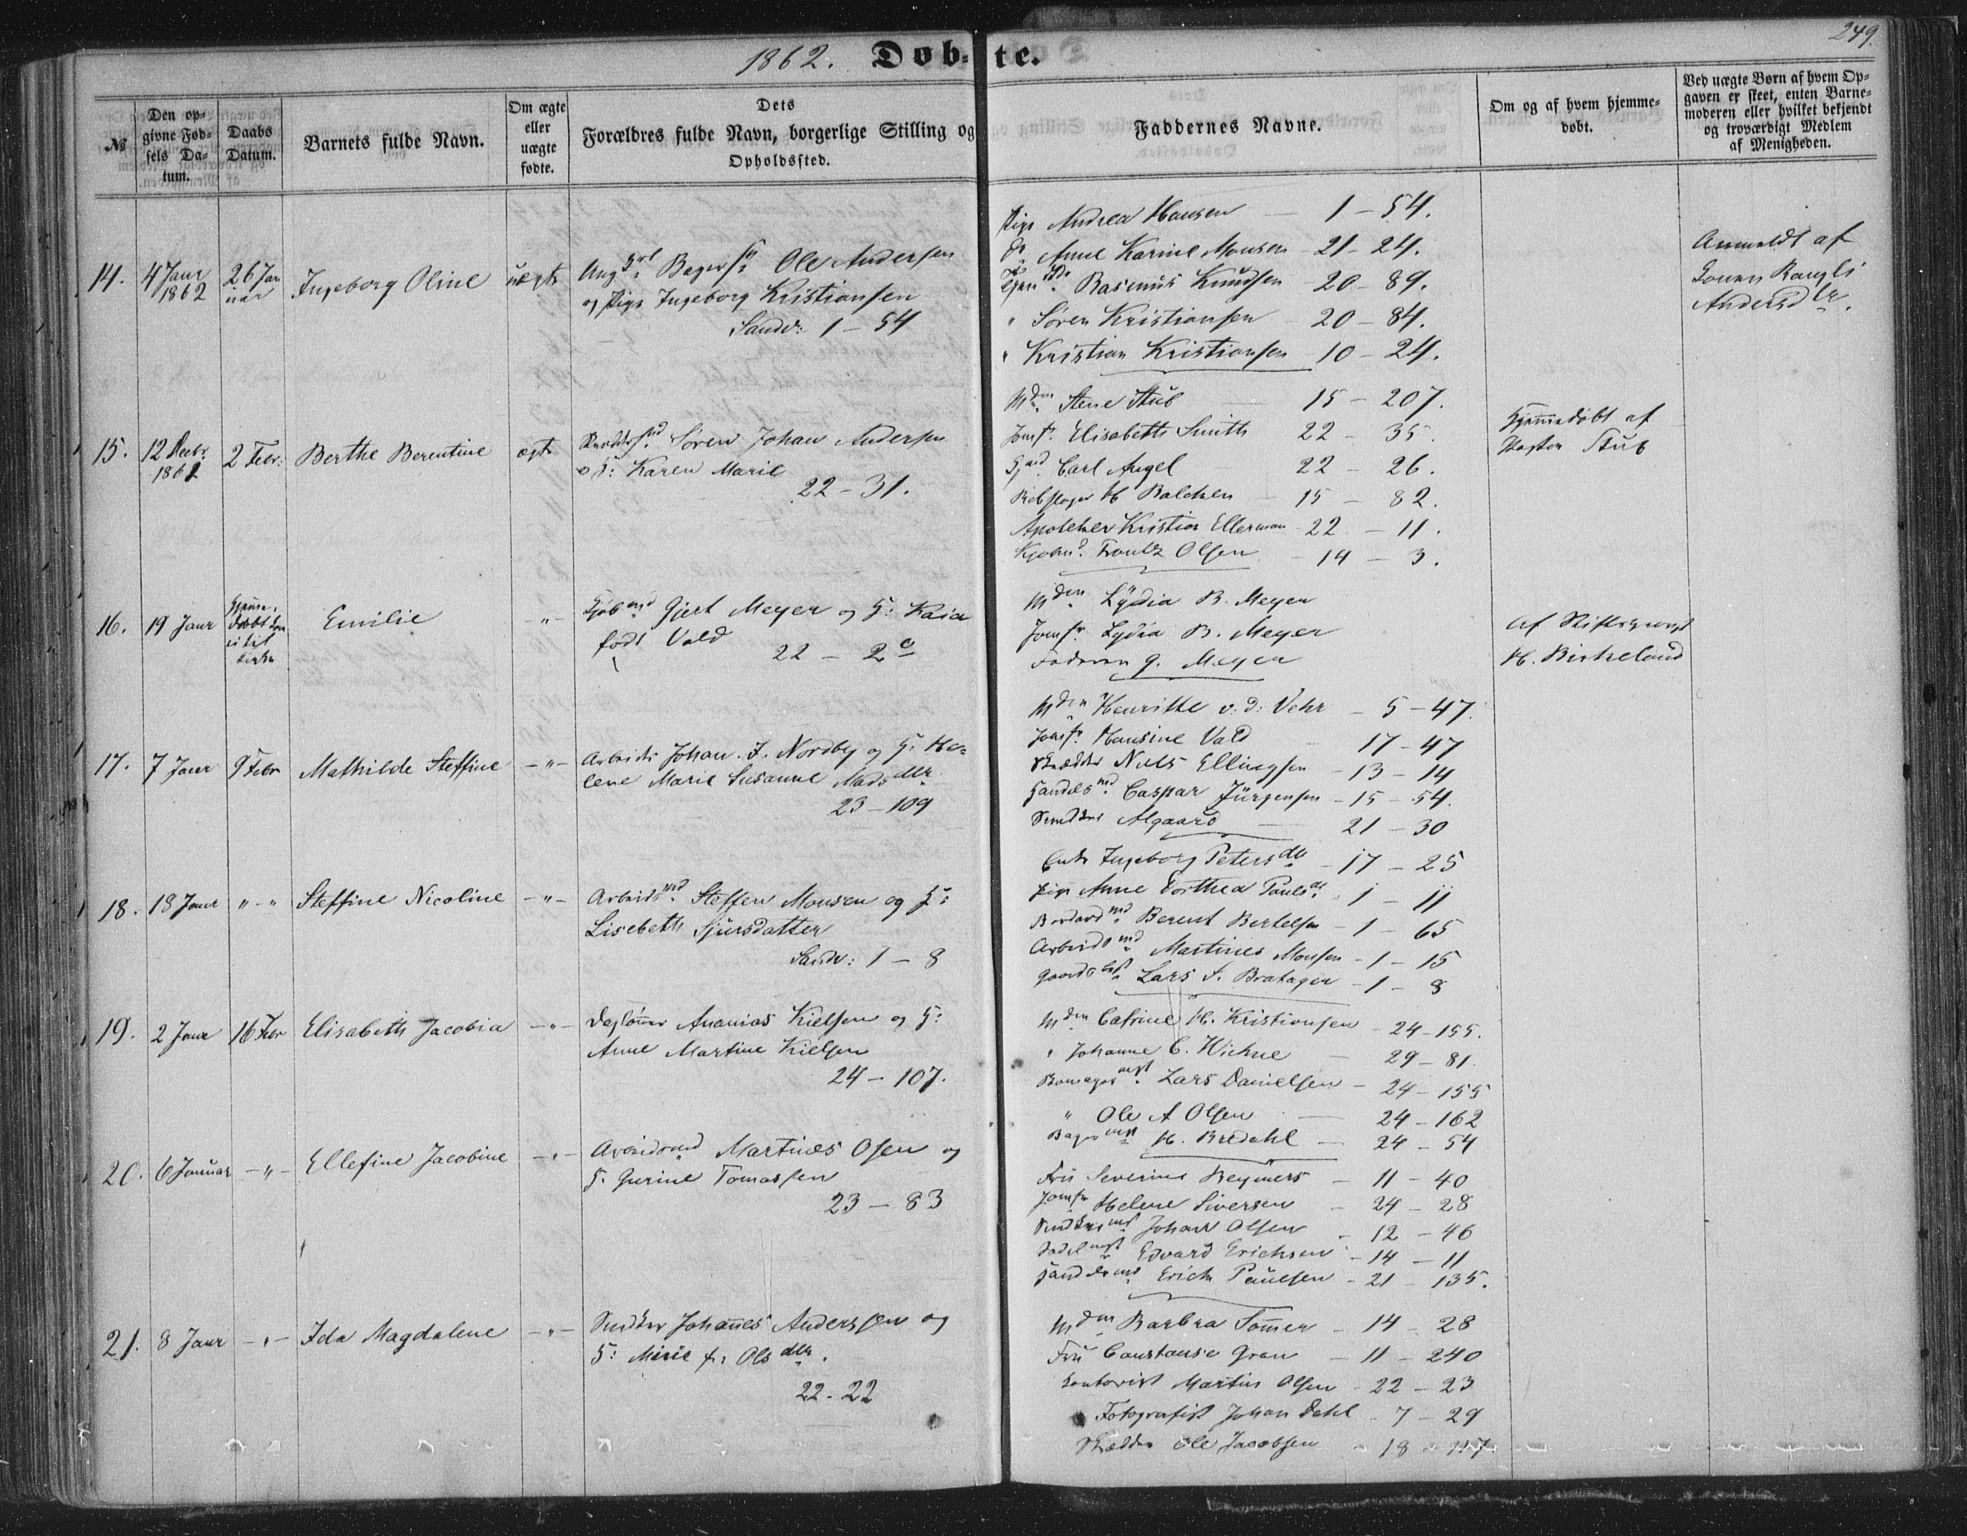 1862. Døb-te. 249.
№
Den op-
givne Fød-
sels Da-
tum.
Daabs
Datum.
Barnets fulde Navn.
Om ægte
eller
uægte
fødte.
Dets
Forældres fulde Navn, borgerlige Stilling og
Opholdssted.
Faddernes Navne.
Om og af hvem hjemme-
døbt.
Ved uægte Børn af hvem Op-
gaven er skeet, enten Barne-
moderen eller hvilket bekjendt
og troværdigt Medlem
af Menigheden.
14. 4 Janr 1862
26 Jan
uar
Ingeborg Oline
uægte
Ungkrl Bager Ole Andersen
og Pige Ingeborg Kristiansen
Sandv: 1 – 54
Pige Andrea Hansen — 1 – 54.
do Anne Karine Monsen – 21 – 24.
Rasmus Knudsen – 20 – 89.
" Søren Kristiansen – 20 – 84.
" Kristian Kristiansen – 10 – 24.
Anmeldt af
Andersdtr.
15. 12 Decbr
1861
2 Febr:
Berthe Berentine
ægte
Søren Johan Andersen
o H: Karen Marie
22 – 31.
Mden Stene Stub 15 – 207.
Jomfr. Elisabeth Smith 22 – 35.
Carl Angel 22 – 26.
Rebslager H Balchen – 15 – 82.
Apotheker Kristian Ellerman – 22 – 11.
Kjøbmd. Frantz Olsen – 14 – 3.
Hjemmedøbt af
Pastor Stub
16. 19 Janr
Emilie
"
Kjøbmd Gjert Meyer og H: Kaia
født Vald
22 – 2c
Mden Lydia B. Meyer
Jomfr. Lydia B. Meyer
Faderen G. Meyer
af Stiftsprovst
H. Birkeland
17. 7 Janr
9 Febr
Mathilde Steffine
– " –
Arbeids Johan. F. Nordby og H: He-
lene Marie Susanne Madsdtr
23 – 109
Mden Henrikke v. d: Vehr – 5 – 47.
Jomfr. Hansine Vald 17 – 47
Skrædder Niels Ellingsen – 13 – 14
Handelsmd Caspar Jürgensen – 15 – 54.
Snedker Algaard 21 – 30
18. 18 Janr
" – "
Steffine Nicoline
– " –
Arbeidsmd Steffen Monsen og H:
Lisebeth Sjursdatter
Sandv: 1 – 8
Enke Ingeborg Petersdtr – 17 – 25
Pige Anne Dorthea Paulsdr – 1 – 11
Berent Bertelsen – 1 – 65
Arbeidsmd Martines Monsen – 1 – 15
Lars J. Bratager – 1 – 8
19. 2 Janr
16 Febr
Elisabeth Jacobia
– " –
Dagløner Ananias Kielsen og H:
Anne Martine Kielsen
24 – 107.
Mden Catrine H. Kristiansen – 24 – 155.
" Johanne C. Wichne – 29 – 81.
Lars Danielsen – 24 – 155
" Ole A Olsen — 24 – 162
Bagermst H. Bredahl – 24 – 54
20. 6 Januar
– " –
Ellefine Jacobine
– " –
Arbeidsmd Martines Olsen og
H. Gurine Tomassen
23 – 83
Fru Severine Reymers – 11 – 40
Jomfr Helene Siversen – 24 – 28
Johan Olsen – 12 – 46
Edvard Erichsen – 14 – 11
Handelsmd Erich Paulsen – 21 – 135.
21. 8 Janr
– " –
Ida Magdalene
– " –
Snedker Johannes Anderssen og
H: Marie f: Olsdtr.
22 – 22
Mden Barbra Sommer – 14 – 28
Fru Constanse Gran – 11 – 240
Kontorist Martin Olsen – 22 – 23
Fotografist Johan Dahl – 7 – 29
Skrædder Ole Jacobsen – 18 – 117